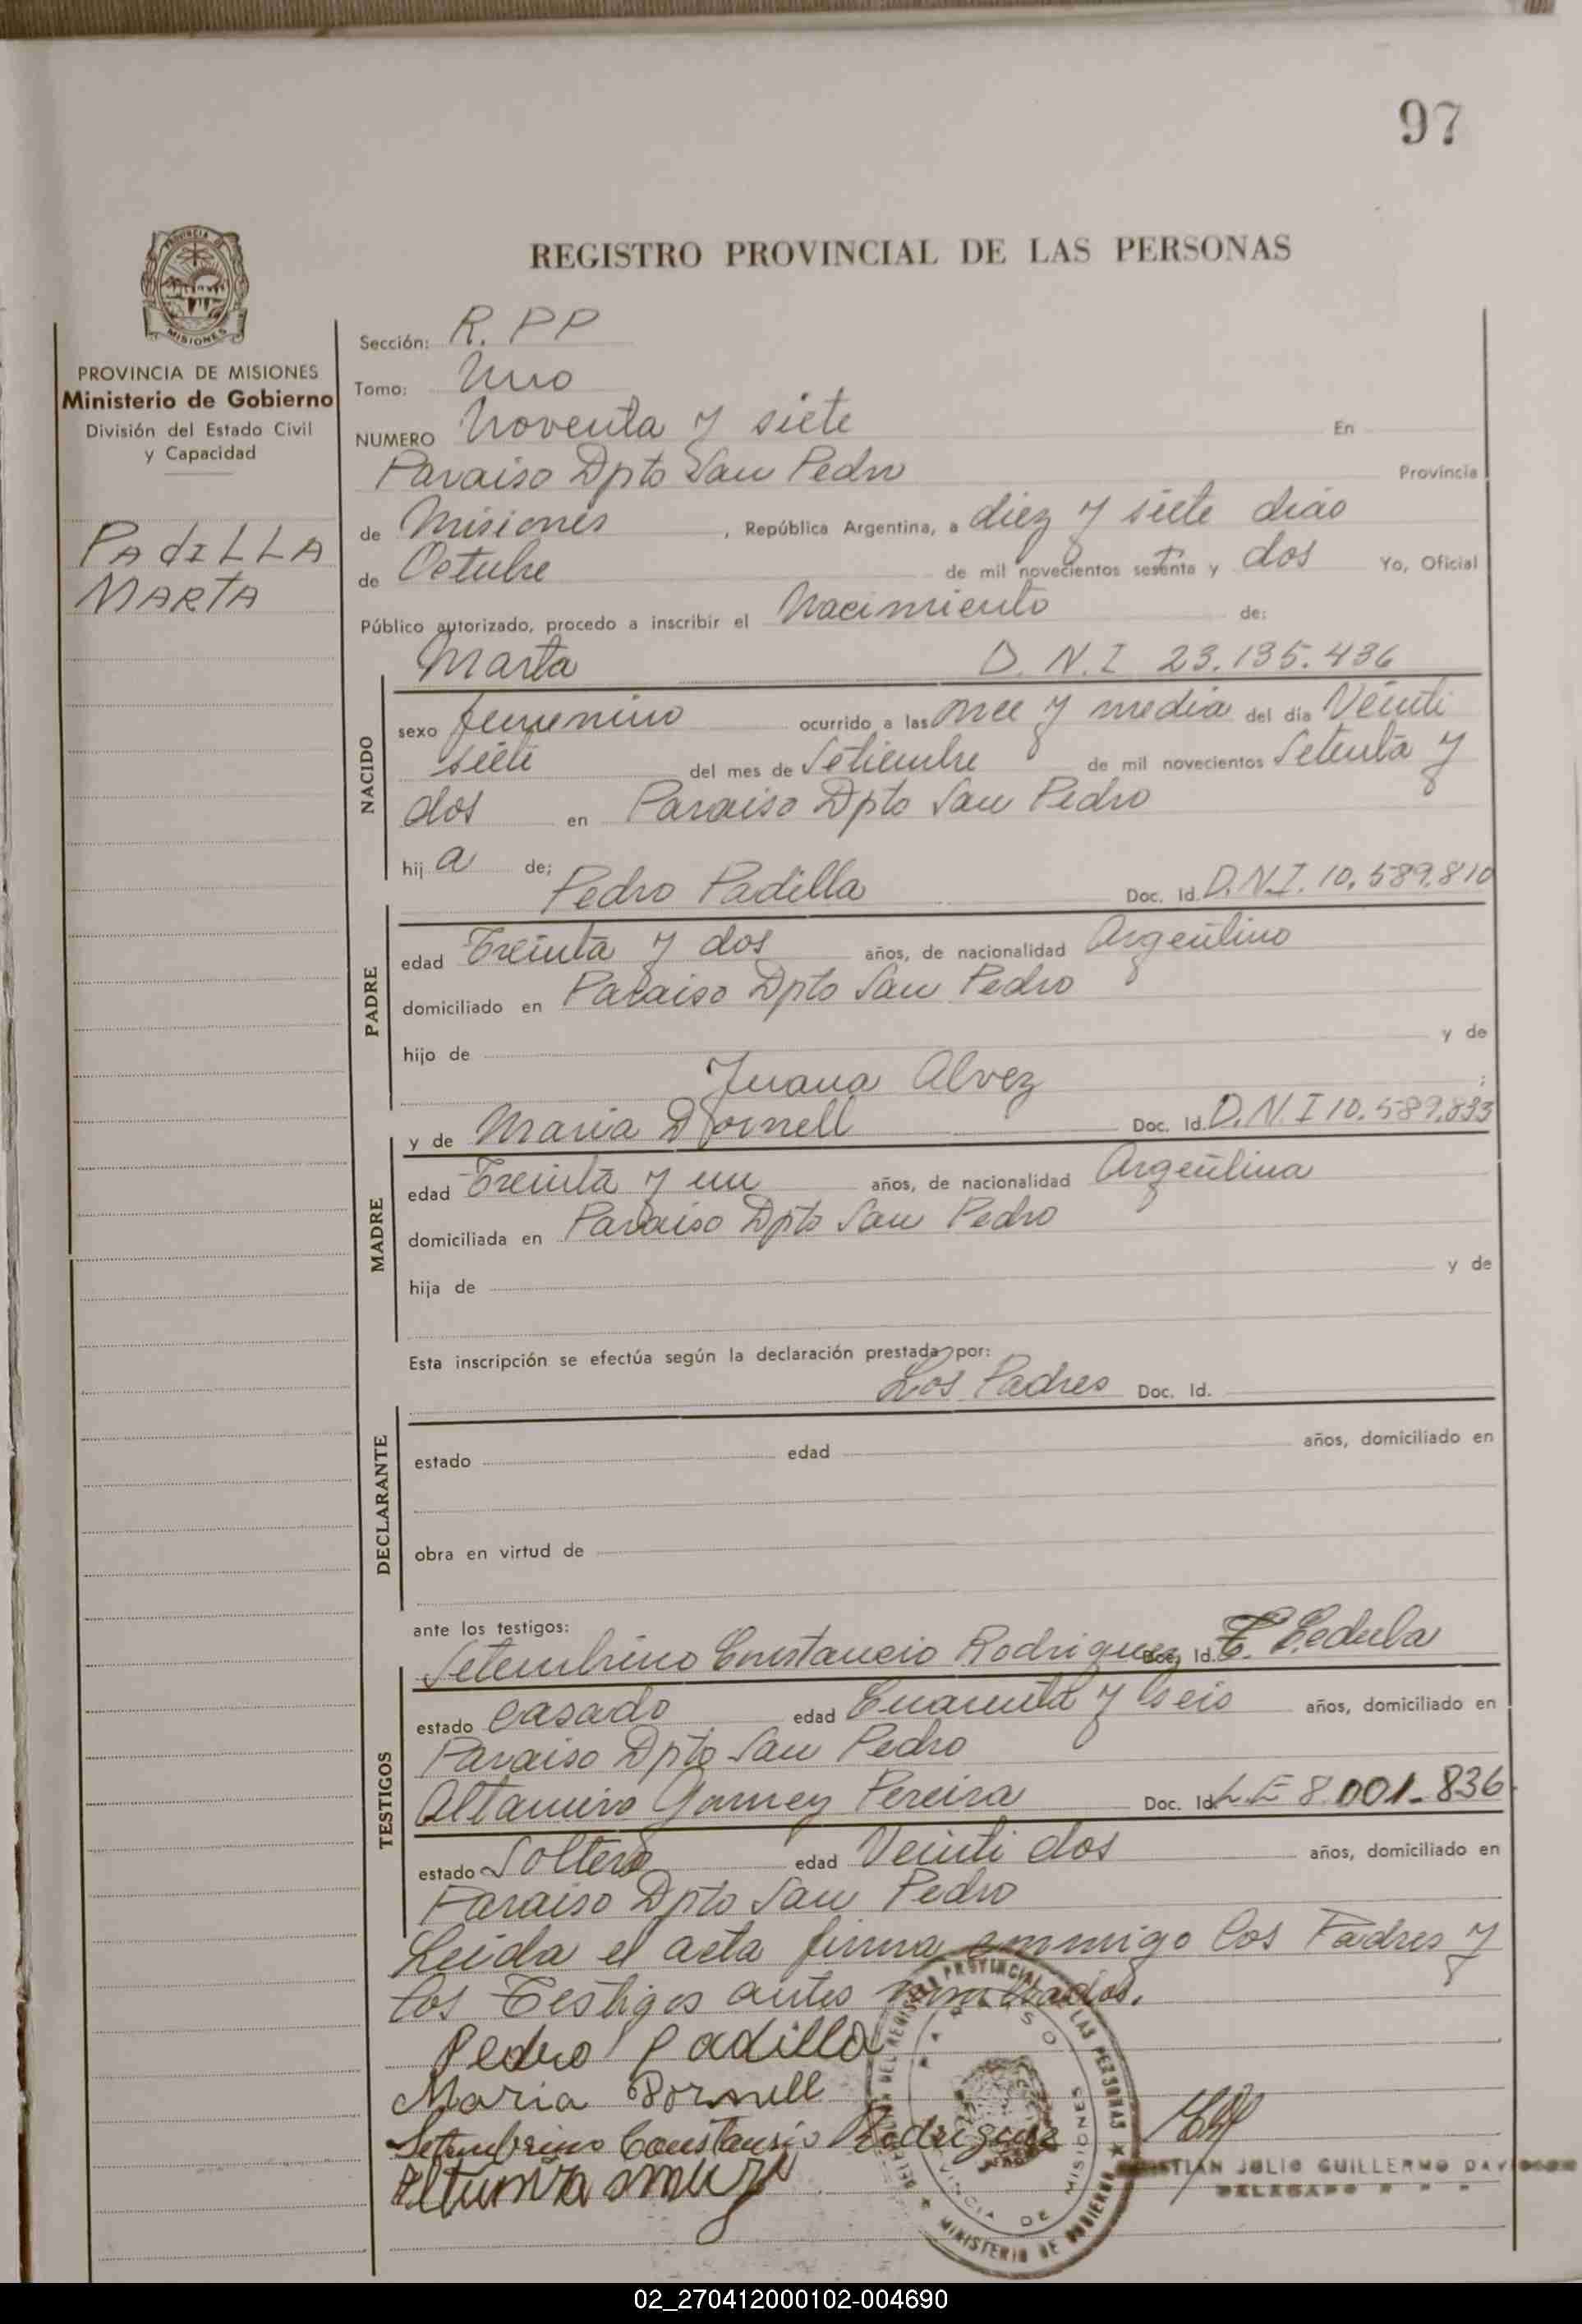 97
REGISTRO PROVINCIAL DE LAS PERSONAS
PROVINCIA DE
MISIONES
PROVINCIA DE MISIONES
Ministerio de Gobierno
División del Estado Civil
y Capacidad
PAdILLA
MARTA
Sección: R. PP
Tomo: Uno
NUMERO Noventa y siete En
Paraiso Dpto San Pedro Provincia
de Misiones , República Argentina, a diez y siete dias
de Octubre de mil novecientos sesenta y dos Yo, Oficial
Público autorizado, procedo a inscribir el Nacimiento de:
Marta D.N.I 23.135.436
NACIDO
sexo femenino ocurrido a las once y media del día Veinti
siete del mes de Setiembre de mil novecientos Setenta y
dos en Paraiso Dpto San Pedro
hij a de;
Pedro Padilla Doc. Id. D.N.I. 10.589.810
PADRE
edad Treinta y dos años, de nacionalidad Argentino
domiciliado en Paraiso Dpto San Pedro
hijo de y de
Juana Alvez ;
y de Maria Dornell Doc. Id. D.N.I 10.589.833
MADRE
edad Treinta y un años, de nacionalidad Argentina
domiciliada en Paraiso Dpto San Pedro
hija de y de
Esta inscripción se efectúa según la declaración prestada por:
Los Padres Doc. Id.
DECLARANTE
estado edad años, domiciliado en
obra en virtud de
ante los testigos:
Setembrino Constancio Rodriguez Doc. Id. Cedula
TESTIGOS
estado casado edad Cuarenta y seis años, domiciliado en
Paraiso Dpto San Pedro
Altamiro Gomez Pereira Doc. Id. L E 8.001.836
estado Soltero edad Veinti dos años, domiciliado en
Paraiso Dpto San Pedro
Leida el acta firma conmigo los Padres y
los Testigos antes nombrados.
Pedro Padilla
Maria Dornell
Setembrino Constansio Rodriguez
DEL REGISTRO PROVINCIAL DE LAS PERSONAS
MINISTERIO DE GOBIERNO
PARAISO
PROVINCIA DE MISIONES
JULIO GUILLERMO
DELEGADO
02_270412000102-004690